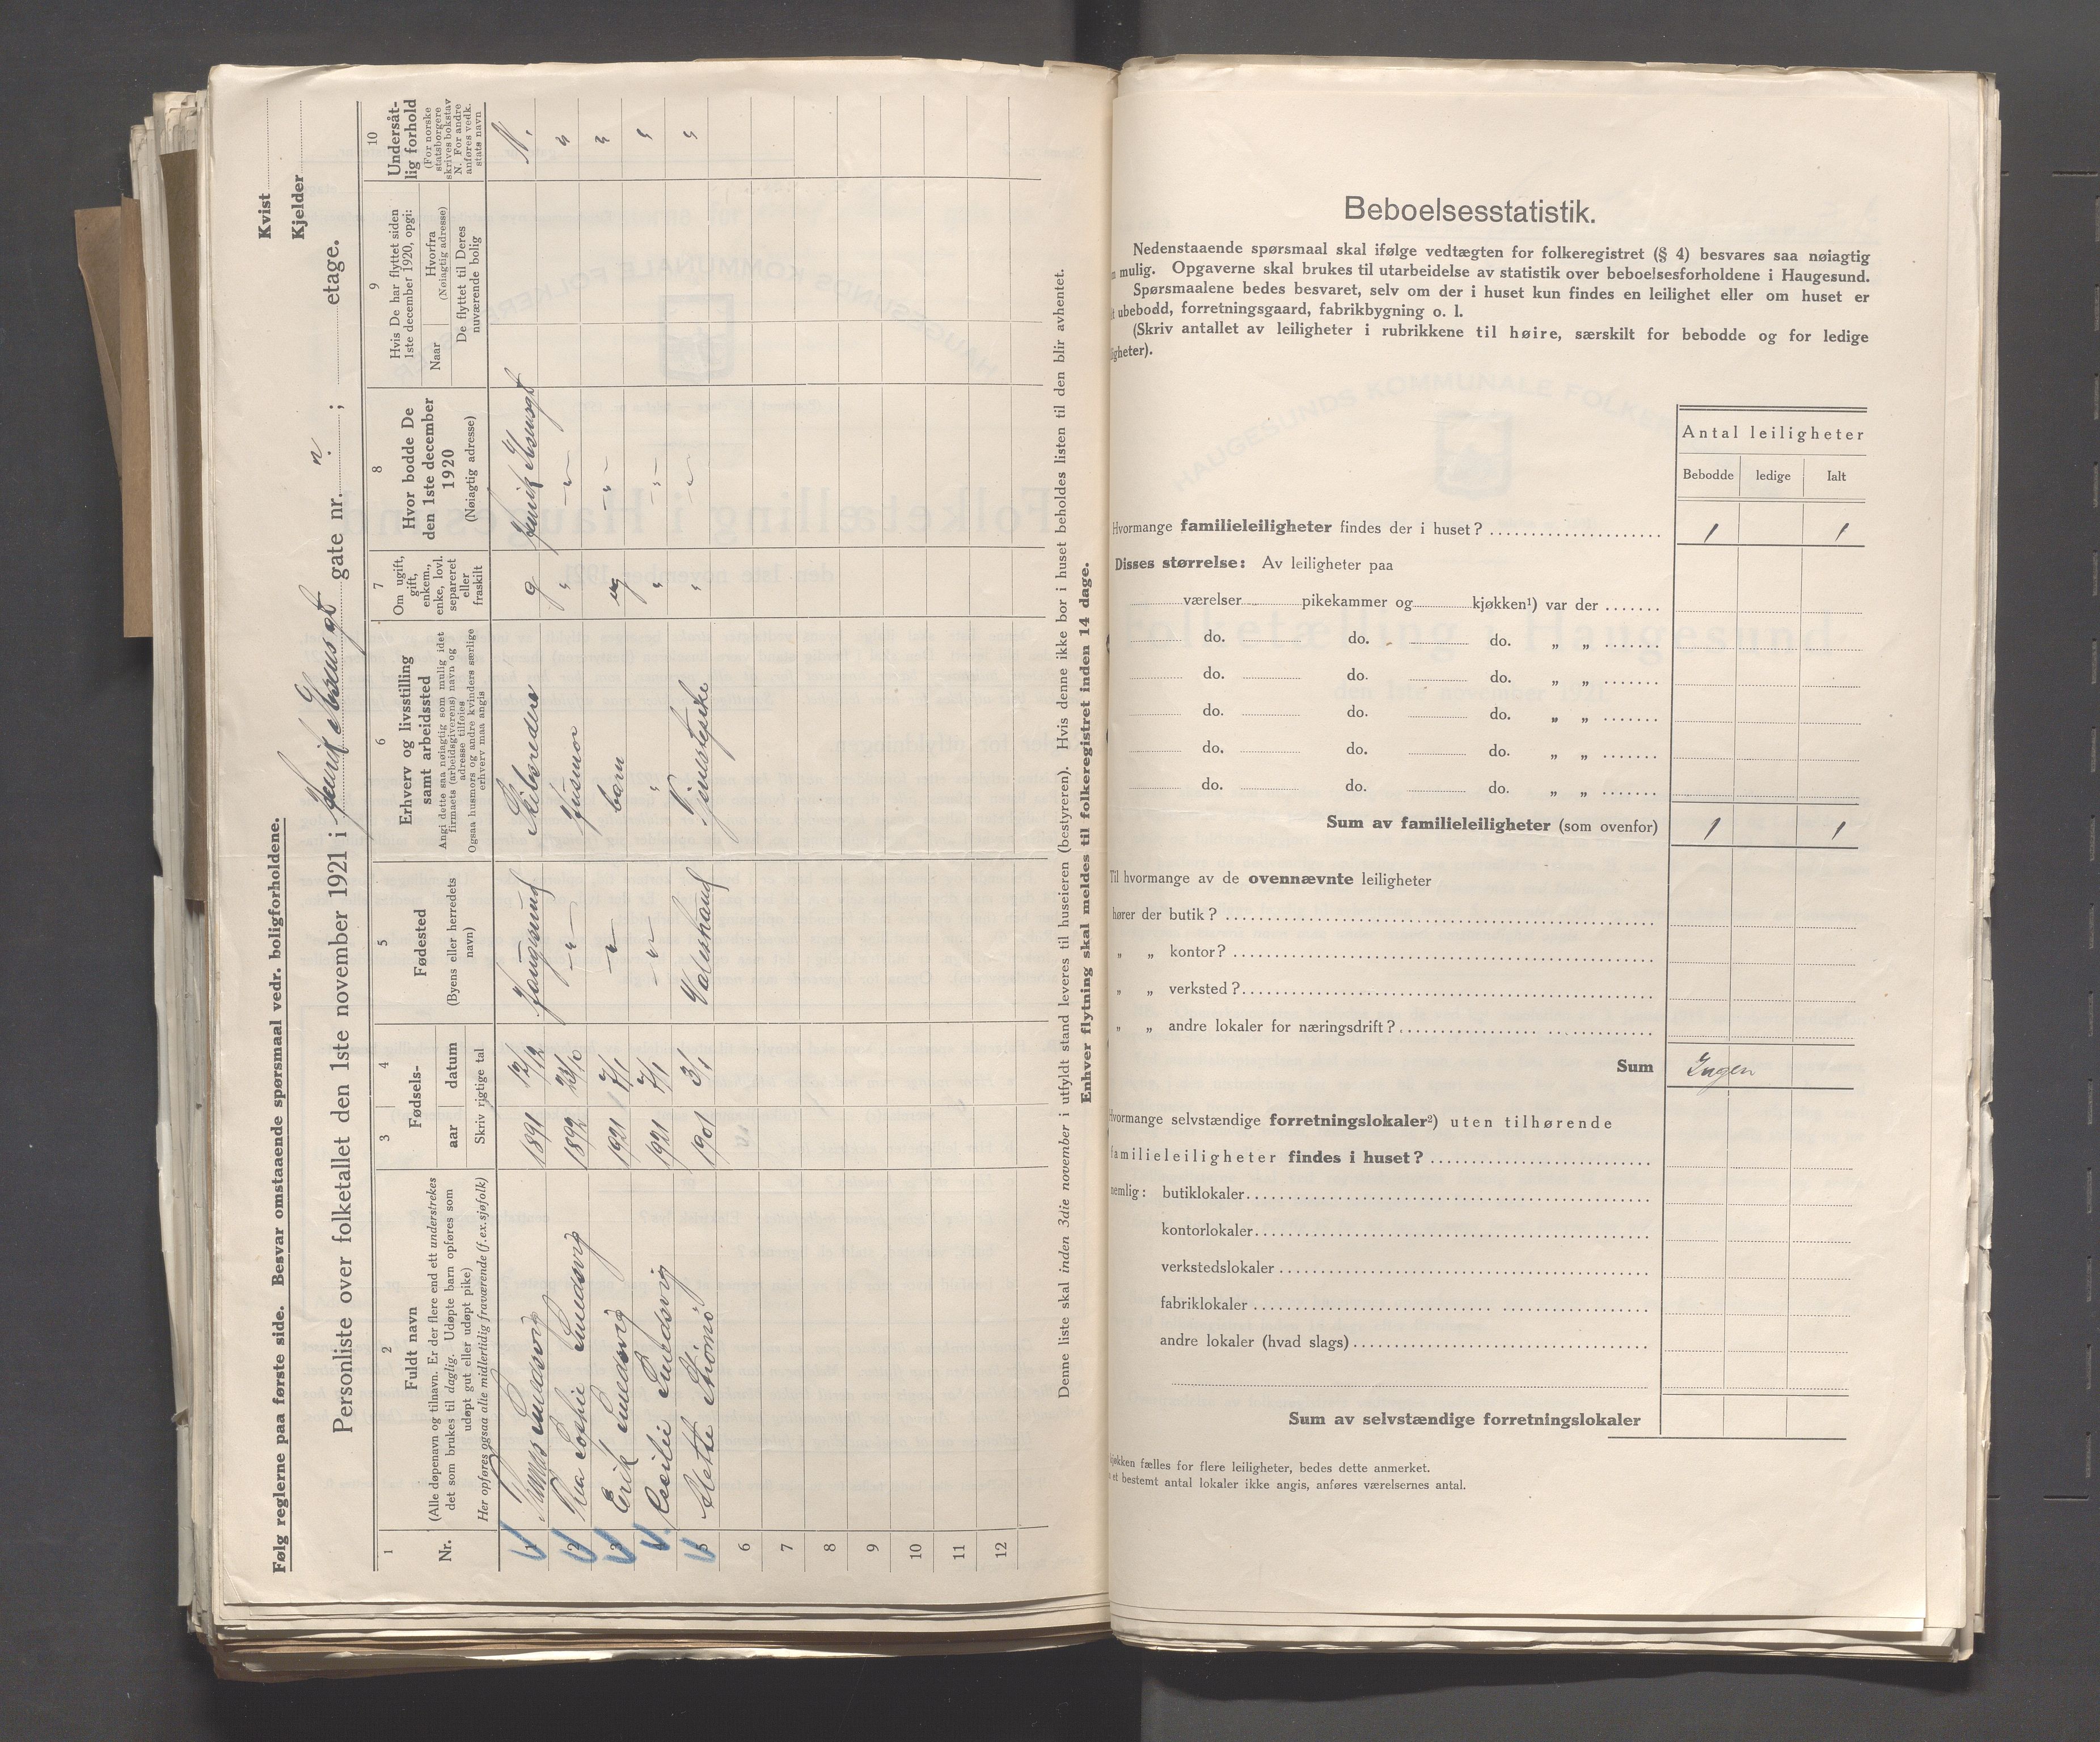 Følg reglerne paa første side. Besvar omstaaende spørsmaal vedr. boligforholdene.
Kvist
Kjelder
Personliste over folketallet den 1ste november 1921 i Henrik Ibsensgt gate nr. ; etage.
1 2 3 4 5 6 7 8 9 10
Nr.
Fuldt navn
(Alle døpenavn og tilnavn. Er der flere end ett understrekes
det som brukes til daglig. Udøpte barn opføres som
udøpt gut eller udøpt pike)
Her opføres ogsaa alle midlertidig fraværende (f.ex.sjøfolk)
Fødsels-
aar datum
Skriv rigtige tal
Fødested
(Byens eller herredets
navn)
Erhverv og livsstilling
samt arbeidssted
Angi dette saa nøiagtig som mulig idet
firmaets (arbeidsgiverens) navn og
adresse tilføies
Ogsaa husmors og andre kvinders særlige
erhverv maa angis
Om ugift,
gift,
enkem.,
enke, lovl.
separeret
eller
fraskilt
Hvor bodde De
den 1ste december
1920
(Nøiagtig adresse)
Hvis De har flyttet siden
1ste december 1920, opgi:
Naar
Hvorfra
(Nøiagtig adresse)
De flyttet til Deres
nuværende bolig
Undersåt-
lig forhold
(For norske
statsborgere
skrives bokstav
N. For andre
anføres vedk.
stats navn
1 Smedsvig 1891 12/12 Haugesund Skibsreder g Henrik Ibsensgt N.
2 Thea Sophie Smedsvig 1892 23/10 -"- Husmor " -"- "
3 Erik Smedsvig 1921 7/1 -"- barn ug -"- "
4 Cecilie Smedsvig 1921 7/1 -"- " " -"- "
5 Mette 1901 3/1 " -"- "
6
7
8
9
10
11
12
Denne liste skal inden 3die november i utfyldt stand leveres til huseieren (bestyreren). Hvis denne ikke bor i huset beholdes listen til den blir avhentet.
Enhver flytning skal meldes til folkeregistret inden 14 dage.
Beboelsesstatistik.
Nedenstaaende spørsmaal skal ifølge vedtægten for folkeregistret (§ 4) besvares saa nøiagtig
mulig. Opgaverne skal brukes til utarbeidelse av statistik over beboelsesforholdene i Haugesund.
Spørsmaalene bedes besvaret, selv om der i huset kun findes en leilighet eller om huset er
ubebodd, forretningsgaard, fabrikbygning o. l.
(Skriv antallet av leiligheter i rubrikkene til høire, særskilt for bebodde og for ledige
ligheter).
Antal leiligheter
Bebodde ledige Ialt
Hvormange familieleiligheter findes der i huset? 1 1
Disses størrelse: Av leiligheter paa
værelser pikekammer og kjøkken¹) var der
do. do. do. „ „
do. do. do. „ „
do. do. do. „ „
do. do. do. „ „
do. do. do. „ „
Sum av familieleiligheter (som ovenfor) 1 1
Til hvormange av de ovennævnte leiligheter
hører der butik?
„ „ kontor?
„ „ verksted?
„ „ andre lokaler for næringsdrift?
Sum Ingen
Hvormange selvstændige forretningslokaler²) uten tilhørende
familieleiligheter findes i huset?
nemlig: butiklokaler
kontorlokaler
verkstedslokaler
fabriklokaler
andre lokaler (hvad slags)
Sum av selvstændige forretningslokaler
kjøkken fælles for flere leiligheter, bedes dette anmerket.
et bestemt antal lokaler ikke angis, anføres værelsernes antal.